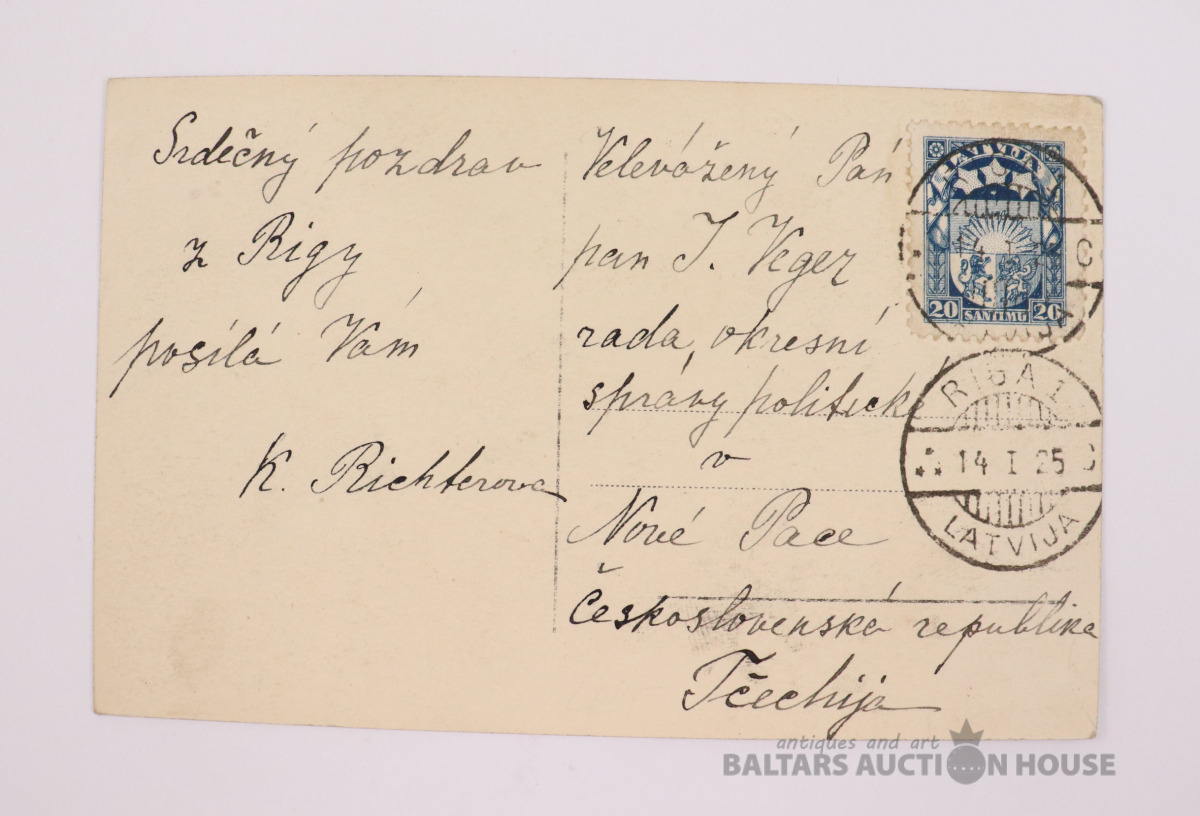 Srdečný pozdrav
z Rigy
posílá Vám
K. Richterova
Velevážený Pán
pan J. Veger
rada okresní
správy politické
v
Nové Pace
Československá republika
Tčechija
LATVIJA
20 SANTIMU 20
RIGA 1
14 I 25 C
LATVIJA
antiques and art
BALTARS AUCTION HOUSE